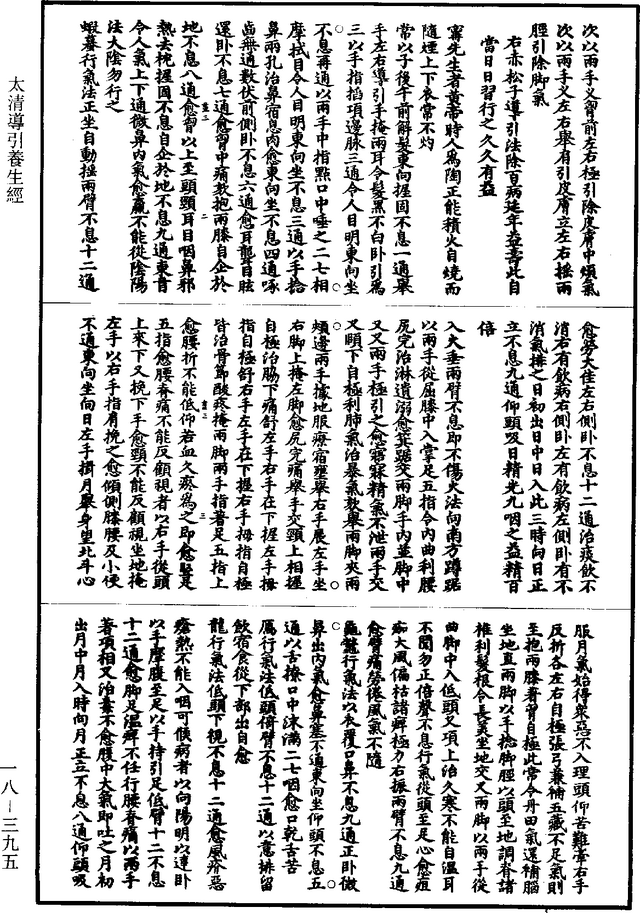 太清導引養生經
次以兩手叉胷前左右極引除皮膚中煩氣
次以兩手叉左右舉有引皮膚立左右搖兩
脛引除脚氣
右赤松子導引法除百病延年益壽此自
當日日習行之久久有益
甯先生者黃帝時人爲陶正能積火自燒而
隨煙上下衣常不灼
常以子後午前解髮東向握固不息一通舉
手左右導引手掩兩耳令髮黑不白卧引爲
三以手指掐項邊脉三通令人目明東向坐
不息再通以兩手中指點口中唾之二七相
摩拭目令人目明東向坐不息三通以手捻
鼻兩孔治鼻宿息肉愈東向坐不息四通啄
齒無通數伏前側卧不息六通愈耳聾目眩
還卧不息七通愈胷中痛欬抱兩膝自企於
地不息八通愈胷以上至頭頸耳目咽鼻邪
熱去枕握固不息自企於地不息九通東首
令人氣上下通微鼻內氣愈羸不能從陰陽
法大陰勿行之
蝦蟇行氣法正坐自動搖兩臂不息十二通
愈勞大佳左右側卧不息十二通治痰飲不
消右有飲病右側卧左有飲病左側卧有不
消氣排之日初出日中日入此三時向日正
立不息九通仰頭吸日精光九咽之益精百
倍
入火垂兩臂不息即不傷火法向南方蹲踞
以兩手從屈膝中入掌足五指令內曲利腰
尻完治淋遺溺愈箕踞交兩脚手內並脚中
又叉兩手極引之愈寤寐精氣不泄兩手交
叉頤下自極利肺氣治暴氣欬舉兩脚夾兩
頰邊兩手據地服療宿壅舉右手展左手坐
右脚上掩左脚愈尻完痛舉手交頸上相握
自極治脇下痛舒左手右手在下握左手拇
指自極舒右手左手在下握右手拇指自極
皆治骨節酸疼掩兩脚兩手指著足五指上
愈腰折不能低仰若血久瘀爲之即愈豎足
五指愈腰脊痛不能反顧視者以右手從頭
上來下又挽下手愈頸不能反顧視坐地掩
左手以右手指肩挽之愈傾側膝腰及小便
不通東向坐向日左手揖月舉身望北斗心
服月氣始得衆惡不入理頭仰苦難牽右手
反折各左右自極張弓兼補五藏不足氣則
至抱兩膝著胷自極此常令丹田氣還補腦
坐地直兩脚以手捻脚脛以頭至地調脊諸
椎利髮根令長美坐地交叉兩脚以兩手從
曲脚中入低頭叉項上治久寒不能自溫耳
不聞勿正倍聲不息行氣從頭至足心愈疽
痂大風偏枯諸痺極力右振兩臂不息九通
愈臂痛勞倦風氣不隨
龜鼈行氣法以衣覆口鼻不息九通正卧微
鼻出內氣愈鼻塞不通東向坐仰頭不息五
通以舌撩口中沫滿二七咽愈口乾舌苦
鴈行氣法低頭倚臂不息十二通以意排留
飲宿食從下部出自愈
龍行氣法低頭下視不息十二通愈風疥惡
瘡熱不能入咽可候病者以向陽明以達卧
以手摩腹至足以手持引足低臂十二不息
十二通愈脚足溫痺不任行腰脊痛以兩手
著項相叉治毒不愈腹中大氣即吐之月初
出月中月入時向月正立不息八通仰頭吸
一八－三九五